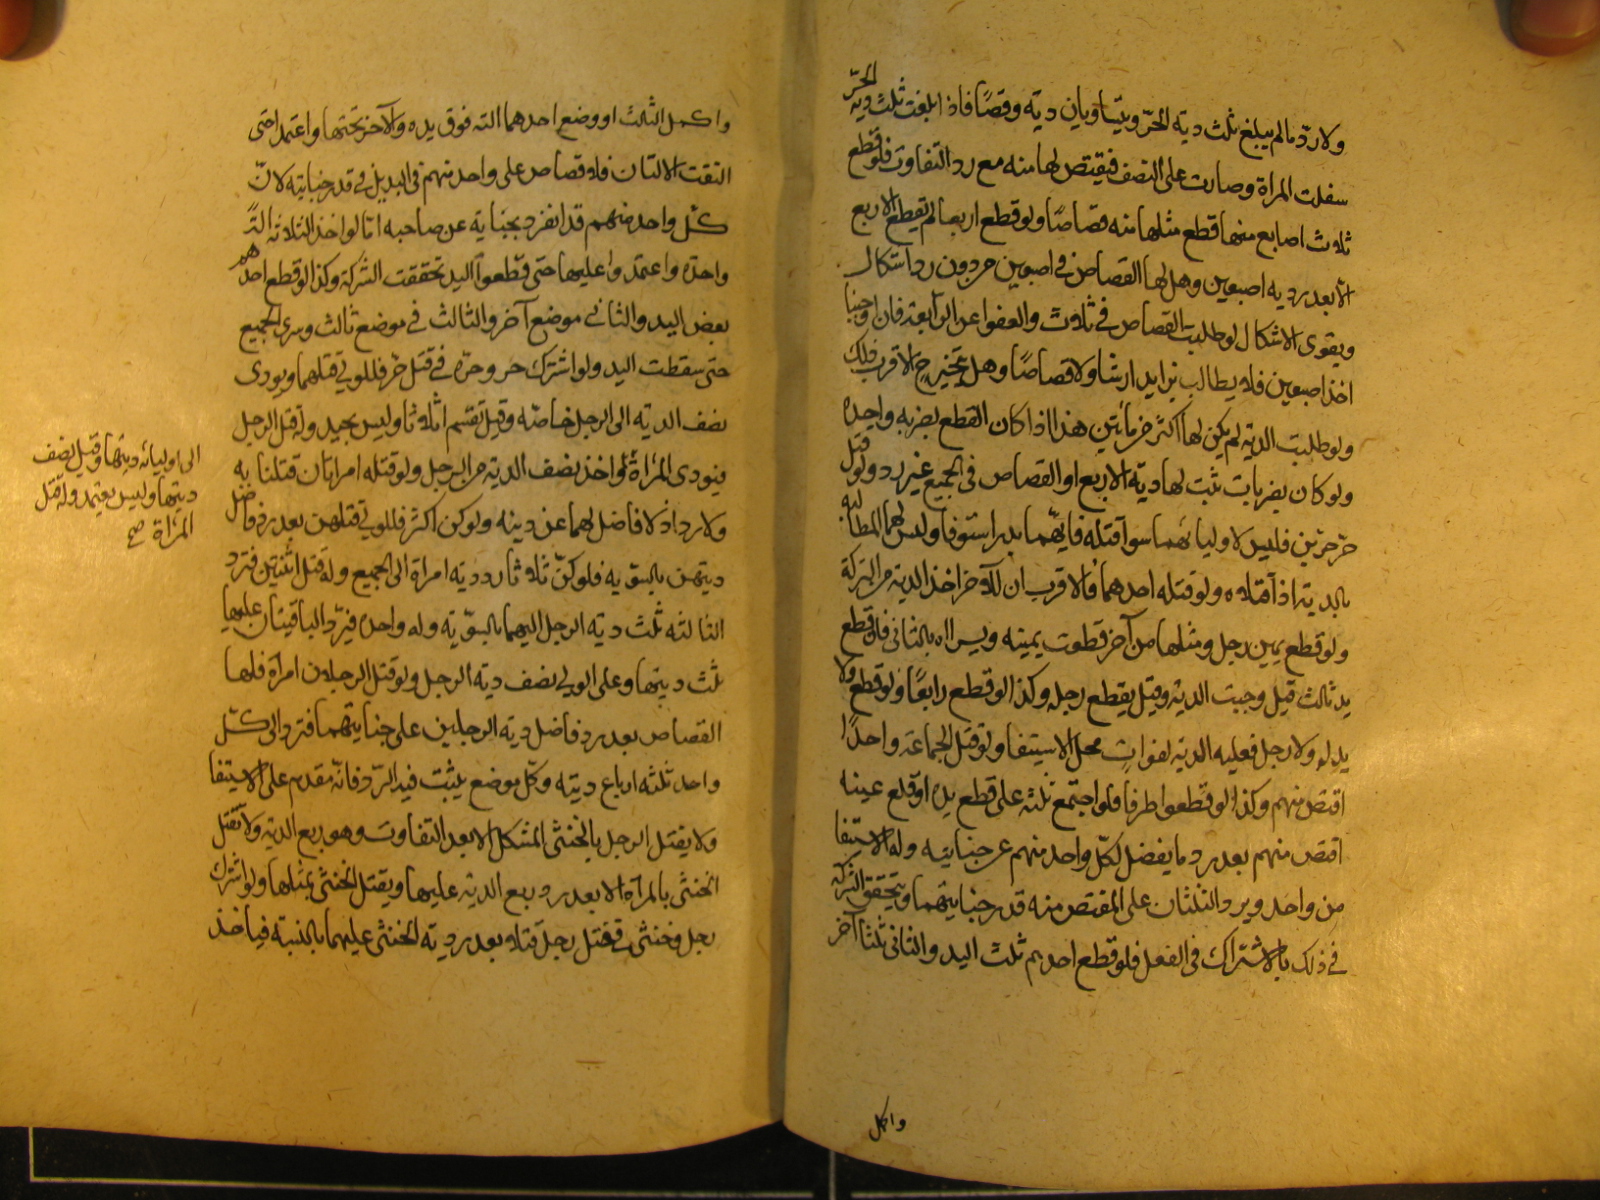 ولا ردّ ما لم يبلغ ثلث دية الحرّ ويتساويان دية وقصاصًا فاذا بلغت ثلث دية الحرّ
سفلت المراة وصارت على النصف فيقتص لها منه مع رد التفاوت فلو قطع
ثلاث اصابع منها قطع مثلها منه قصاصًا ولو قطع اربعا لم يقطع الاربع
الا بعد رد دية اصبعين وهل لها القصاص في اصبعين من دون رد اشكال
ويقوى الاشكال لو طلبت القصاص في ثلاث والعفو عن الرابعة فان اوجبنا
اخذ اصبعين فلا يطالب بزايد ارشا ولا قصاصًا وهل يتخير ح الاقرب ذلك
ولو طلبت الدية لم يكن لها اكثر من مائتين هذا اذا كان القطع بضربة واحدة
ولو كان بضربات ثبت لها دية الاربع او القصاص في الجميع من غير رد ولو قتل
حرّ حرّين فليس لاوليائهما سوا قتله فايّهما بدر استوفا وليس لهما المطالبة
بالدية اذا قتلاه ولو قتله احدهما فالاقرب ان للآخر اخذ الدية من التركة
ولو قطع يمين رجل ومثلها من آخر قطعت يمينه ويسراه بالثاني فان قطع
يد ثالث قيل وجبت الدية وقيل يقطع رجله وكذا لو قطع رابعًا ولو قطع ولا
يد له ولا رجل فعليه الدية لفوات محل الاستيفا ولو قتل الجماعة واحدًا
اقتص منهم وكذا لو قطعوا طرفا فلو اجتمع ثلثة على قطع يده او قلع عينه
اقتص منهم بعد رد ما يفضل لكلّ واحد منهم عن جنايته وله الاستيفا
من واحد ويرد الثلثان على المقتص منه قدر جنايتهما ويتحقق الشركة
في ذلك بالاشتراك في الفعل فلو قطع احدهم ثلث اليد والثاني ثلثا آخر
واكمل
واكمل الثالث او وضع احدهما آلته فوق يده والآخر تحتها واعتمدا حتى
التقت الالتان فلا قصاص على واحد منهم في اليد بل في قدر جنايته لانّ
كلّ واحد منهم قد انفرد بجناية عن صاحبه اما لو اخذ الثلاثة آلةً
واحدة واعتمدوا عليها حتى قطعوا اليد تحققت الشركة وكذا لو قطع احدهم
بعض اليد والثاني موضع آخر والثالث في موضع ثالث وسرى الجميع
حتى سقطت اليد ولو اشترك حر وحرّة في قتل حرّ فللولي قتلهما ويودى
نصف الدية الى الرجل خاصّة وقيل تقسم اثلاثا وليس بجيد وله قتل الرجل
فيودى المرأة
الى اوليائه ديتها وقيل نصف
ديتها وليس بمعتمد وله قتل
المرأة صح
ولو اخذ نصف الدية من الرجل ولو قتله امراتان قتلتا به
ولا رد اذ لا فاضل لهما عن ديته ولو كن اكثر فللولي قتلهن بعد رد فاضل
ديتهن بالسوية فلو كنّ ثلاثا رد دية امراة الى الجميع وله قتل اثنتين فترد
الثالثة ثلث دية الرجل اليهما بالسويّة وله واحدة فيردّ الباقيتان عليها
ثلث ديتها وعلى الولي نصف دية الرجل ولو قتل الرجلان امراة فلها
القصاص بعد رد فاضل دية الرجلين على جنايتهما فترد الى كلّ
واحد ثلثة ارباع ديته وكلّ موضع يثبت فيه الردّ فانّه مقدم على الاستيفا
ولا يقتل الرجل بالخنثى المشكل الا بعد التفاوت وهو ربع الدية ولا تقتل
الخنثى بالمراة الا بعد رد ربع الدية عليها ويقتل الخنثى بمثلها ولو اشترك
رجل وخنثى في قتل رجل قتلا بعد رد دية الخنثى عليهما بالنسبة فياخذ